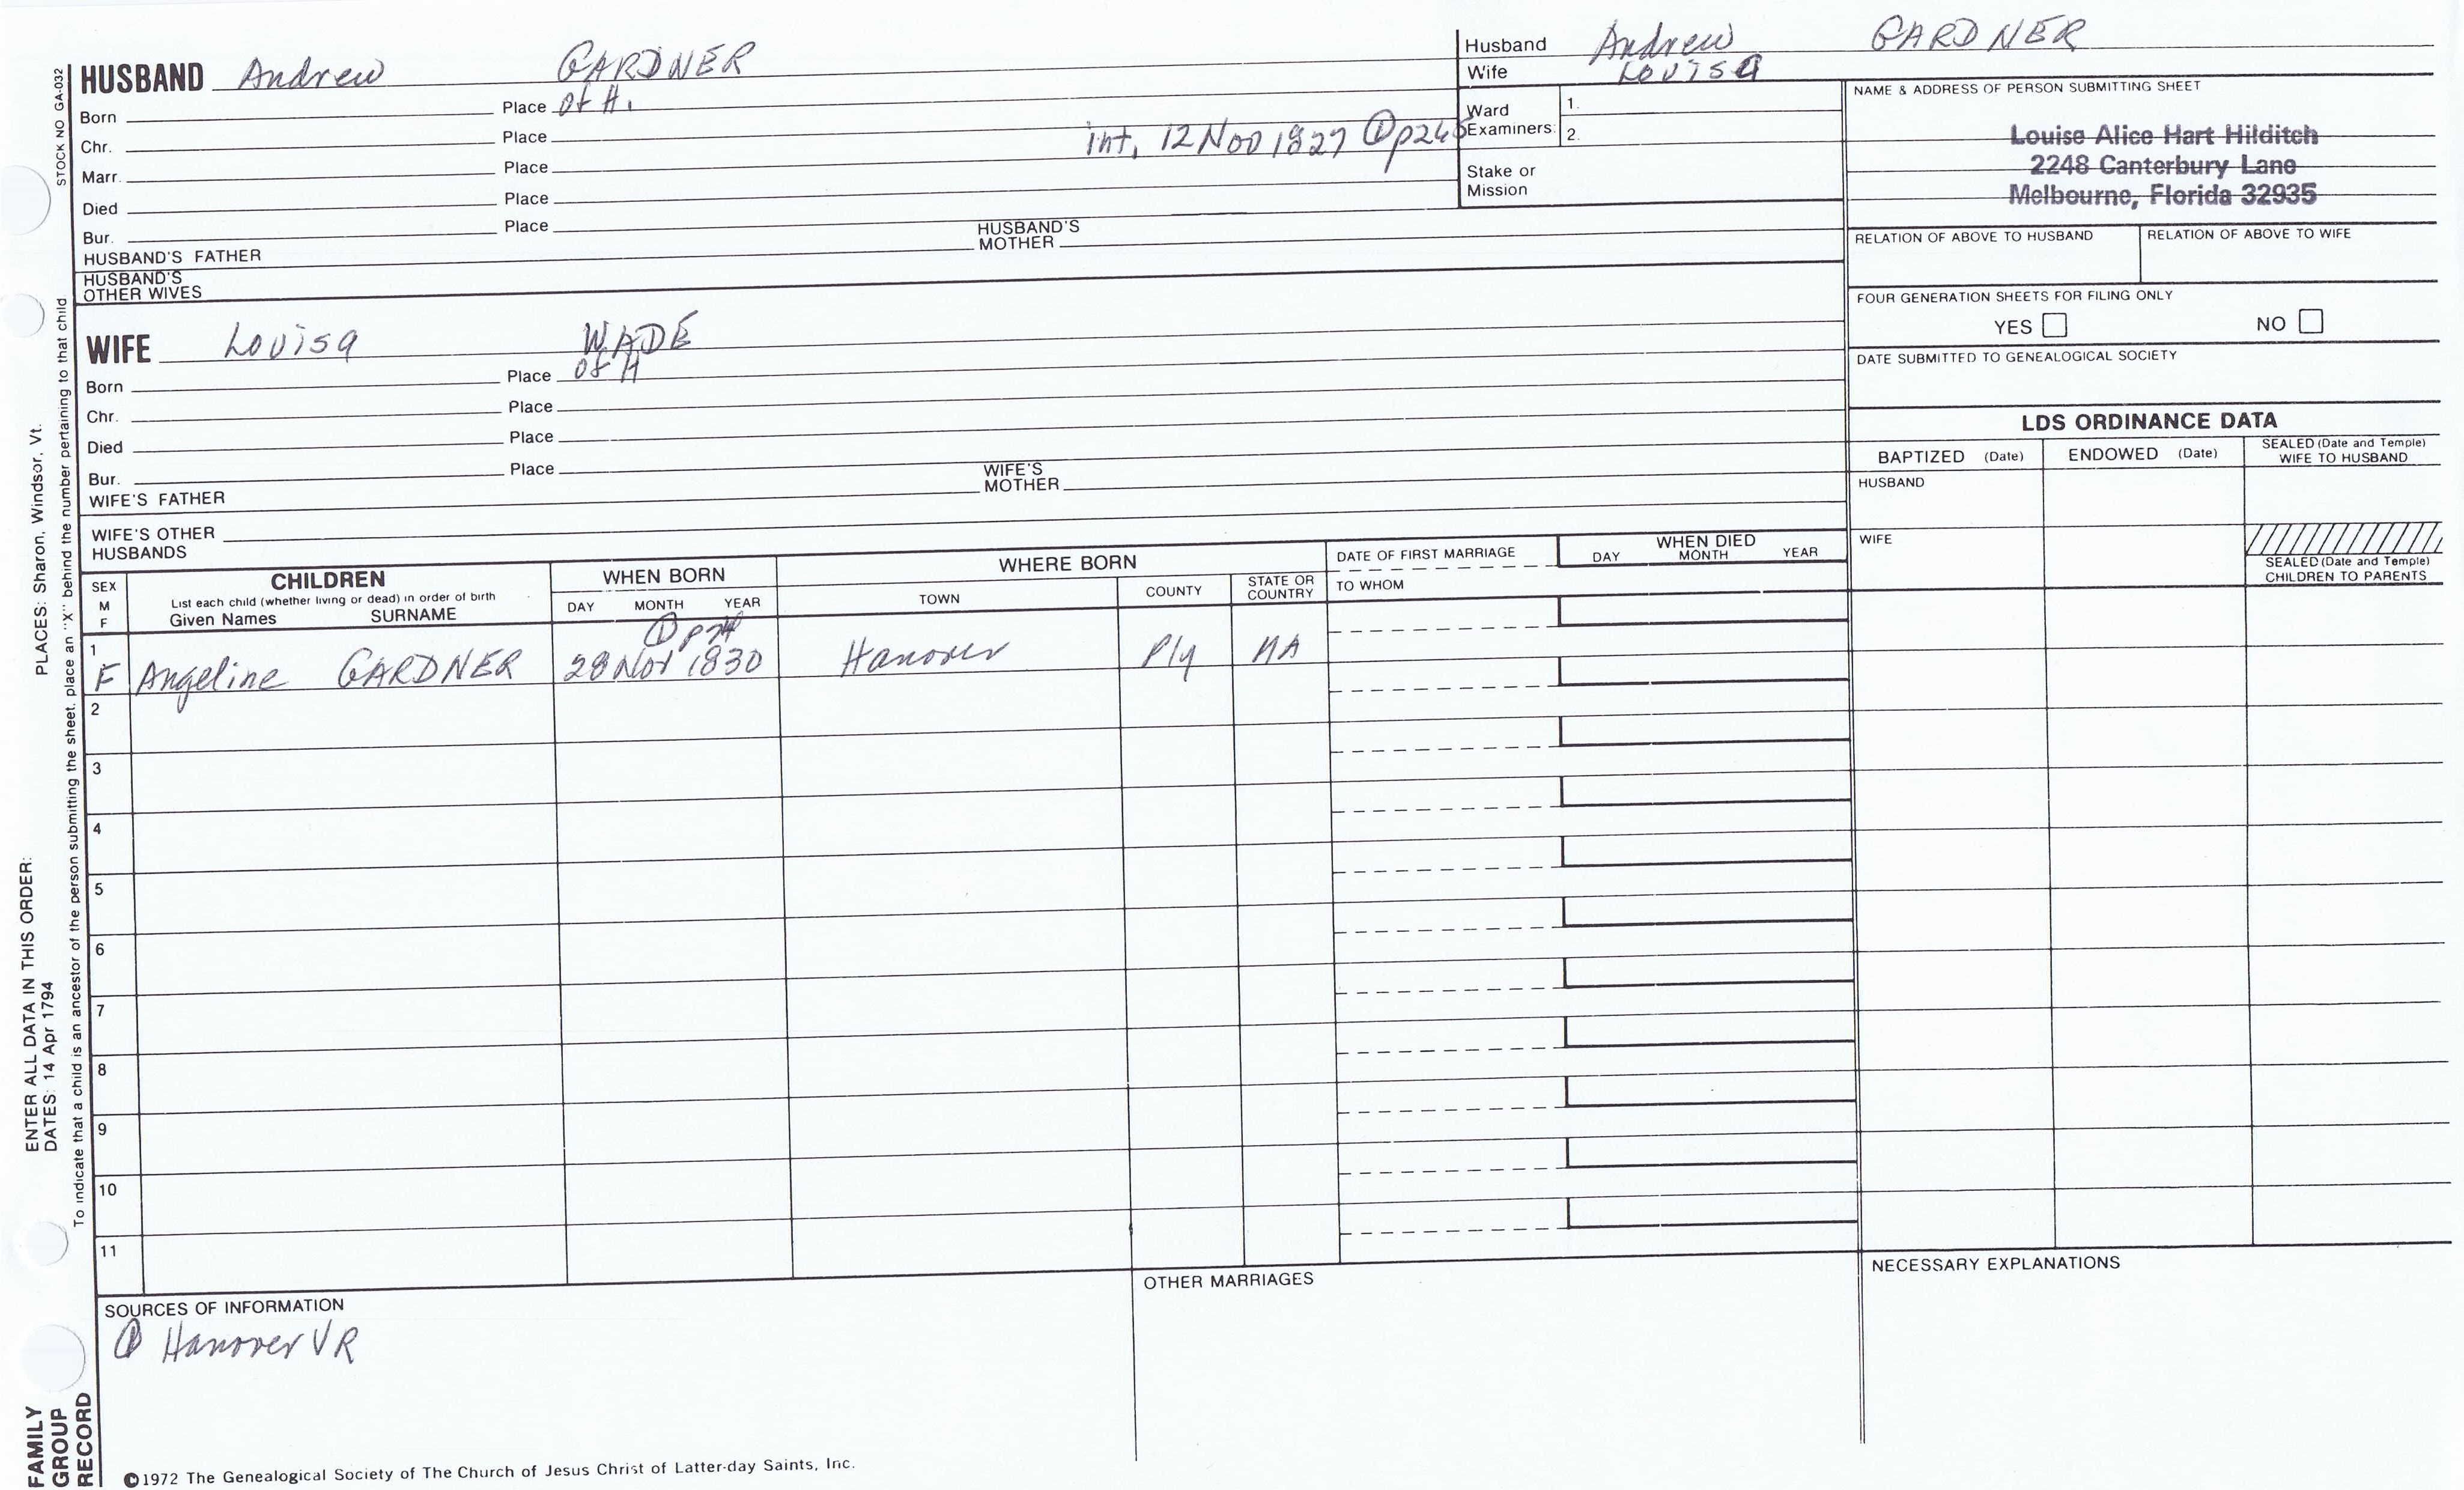 STOCK NO GA-032
HUSBAND Andrew GARDNER
Born Place of H.
Chr. Place
Marr. Place int, 12 Nov 1827 ① p
Died Place
Bur. Place
HUSBAND'S FATHER HUSBAND'S MOTHER
HUSBAND'S OTHER WIVES
WIFE Louisa WADE
Born Place of H
Chr. Place
Died Place
Bur. Place
WIFE'S FATHER WIFE'S MOTHER
WIFE'S OTHER HUSBANDS
Husband Andrew GARDNER
Wife Louisa
Ward Examiners: 1.
2.
Stake or Mission
NAME & ADDRESS OF PERSON SUBMITTING SHEET
Louise Alice Hart Hilditch
2248 Canterbury Lane
Melbourne, Florida 32935
RELATION OF ABOVE TO HUSBAND RELATION OF ABOVE TO WIFE
FOUR GENERATION SHEETS FOR FILING ONLY
YES NO
DATE SUBMITTED TO GENEALOGICAL SOCIETY
LDS ORDINANCE DATA
BAPTIZED (Date) ENDOWED (Date) SEALED (Date and Temple) WIFE TO HUSBAND
HUSBAND
WIFE
SEALED (Date and Temple) CHILDREN TO PARENTS
SEX M F
CHILDREN
List each child (whether living or dead) in order of birth
Given Names SURNAME
WHEN BORN
DAY MONTH YEAR
WHERE BORN
TOWN COUNTY STATE OR COUNTRY
DATE OF FIRST MARRIAGE
TO WHOM
WHEN DIED
DAY MONTH YEAR
① p
1
F Angeline GARDNER 28 Nov 1830 Hanover Ply MA
2
3
4
5
6
7
8
9
10
11
SOURCES OF INFORMATION
① Hanover VR
OTHER MARRIAGES
NECESSARY EXPLANATIONS
©1972 The Genealogical Society of The Church of Jesus Christ of Latter-day Saints, Inc.
FAMILY GROUP RECORD
ENTER ALL DATA IN THIS ORDER:
DATES: 14 Apr 1794 PLACES: Sharon, Windsor, Vt.
To indicate that a child is an ancestor of the person submitting the sheet, place an "X" behind the number pertaining to that child